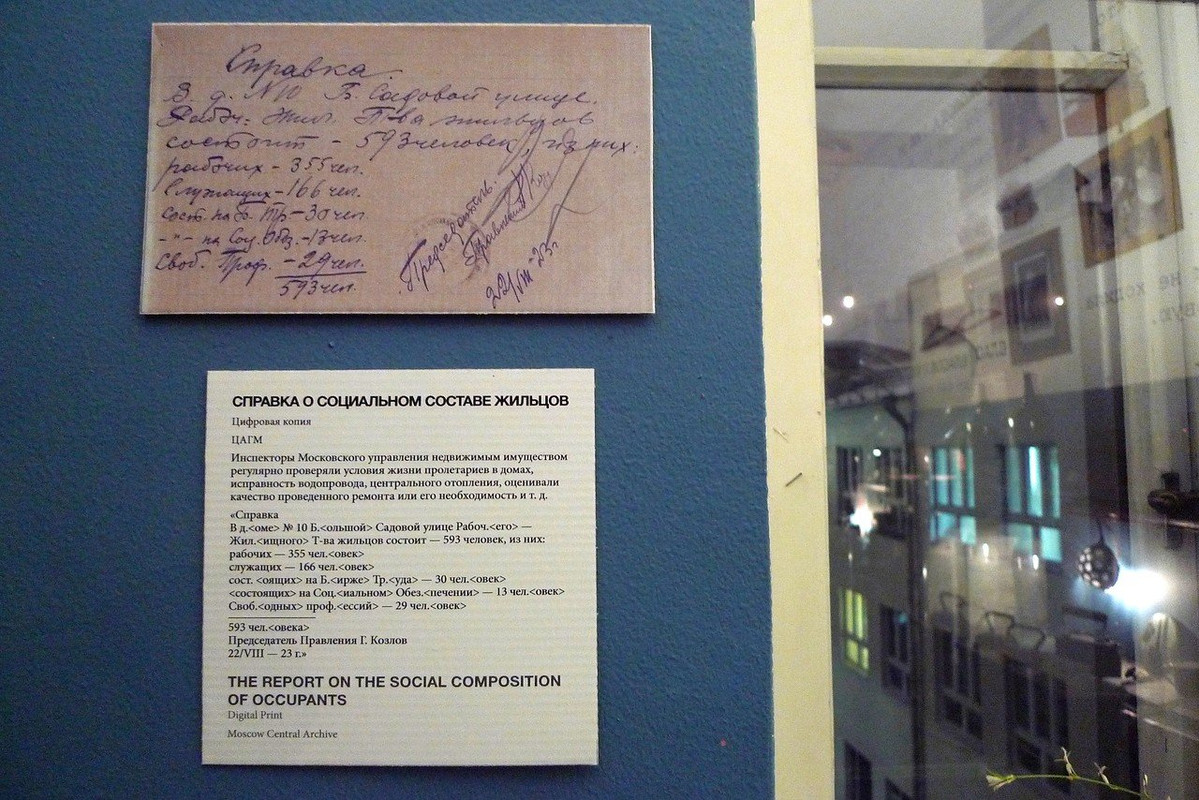 Справка.
В д. №10 Б. Садовой улице.
Рабоч. Жил. Т-ва жильцов
состоит - 593 человек, из них:
рабочих - 355 чел.
Служащих - 166 чел.
Сост. на б. Тр - 30 чел
-"- на Соц. Обез. - 13 чел.
Своб. Проф. - 29 чел.
593 чел.
Председатель
Правления
22/VIII - 23 г.
СПРАВКА О СОЦИАЛЬНОМ СОСТАВЕ ЖИЛЬЦОВ
Цифровая копия
ЦАГМ
Инспекторы Московского управления недвижимым имуществом
регулярно проверяли условия жизни пролетариев в домах,
исправность водопровода, центрального отопления, оценивали
качество проведенного ремонта или его необходимость и т. д.
«Справка
В д.<оме> № 10 Б.<ольшой> Садовой улице Рабоч.<его> —
Жил.<ищного> Т-ва жильцов состоит — 593 человек, из них:
рабочих — 355 чел.<овек>
служащих — 166 чел.<овек>
сост. <оящих> на Б.<ирже> Тр.<уда> — 30 чел.<овек>
<состоящих> на Соц.<иальном> Обез.<печении> — 13 чел.<овек>
Своб.<одных> проф.<ессий> — 29 чел.<овек>
593 чел.<овека>
Председатель Правления Г. Козлов
22/VIII — 23 г.»
THE REPORT ON THE SOCIAL COMPOSITION
OF OCCUPANTS
Digital Print
Moscow Central Archive